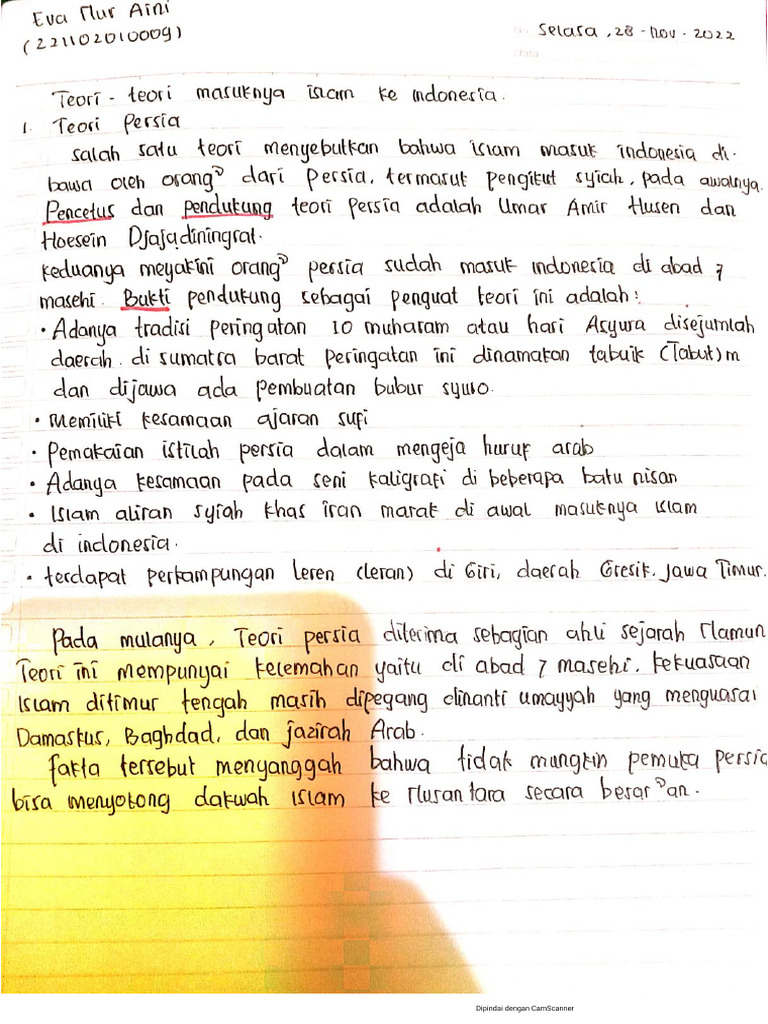 Eva Nur Aini
(221102010009)
Selasa, 28 - nov - 2022
No
Date
Teori - teori masuknya islam ke indonesia.
1. Teori Persia
salah satu teori menyebutkan bahwa islam masuk indonesia di-
bawa oleh orang² dari Persia, termasuk pengikut syiah, pada awalnya.
Pencetus dan pendukung teori Persia adalah Umar Amir Husen dan
Hoesein Djajadiningrat.
keduanya meyakini orang² persia sudah masuk indonesia di abad 7
masehi. Bukti pendukung sebagai penguat teori ini adalah:
• Adanya tradisi peringatan 10 muharam atau hari Asyura disejumlah
daerah. di sumatra barat peringatan ini dinamakan tabuik (Tabut)m
dan dijawa ada pembuatan bubur syuro.
• Memiliki kesamaan ajaran sufi
• Pemakaian istilah persia dalam mengeja huruf arab
• Adanya kesamaan pada seni kaligrafi di beberapa batu nisan
• Islam aliran syiah khas iran marak di awal masuknya islam
di indonesia.
• terdapat perkampungan Leren (leran) di Giri, daerah Gresik. Jawa Timur.
Pada mulanya, Teori persia diterima sebagian ahli sejarah Namun
Teori ini mempunyai kelemahan yaitu di abad 7 masehi. kekuasaan
Islam ditimur tengah masih dipegang dinanti umayyah yang menguasai
Damaskus, Baghdad, dan jazirah Arab.
fakta tersebut menyanggah bahwa tidak mungkin pemuka persia
bisa menyokong dakwah islam ke Nusantara secara besar²an.
Dipindai dengan CamScanner